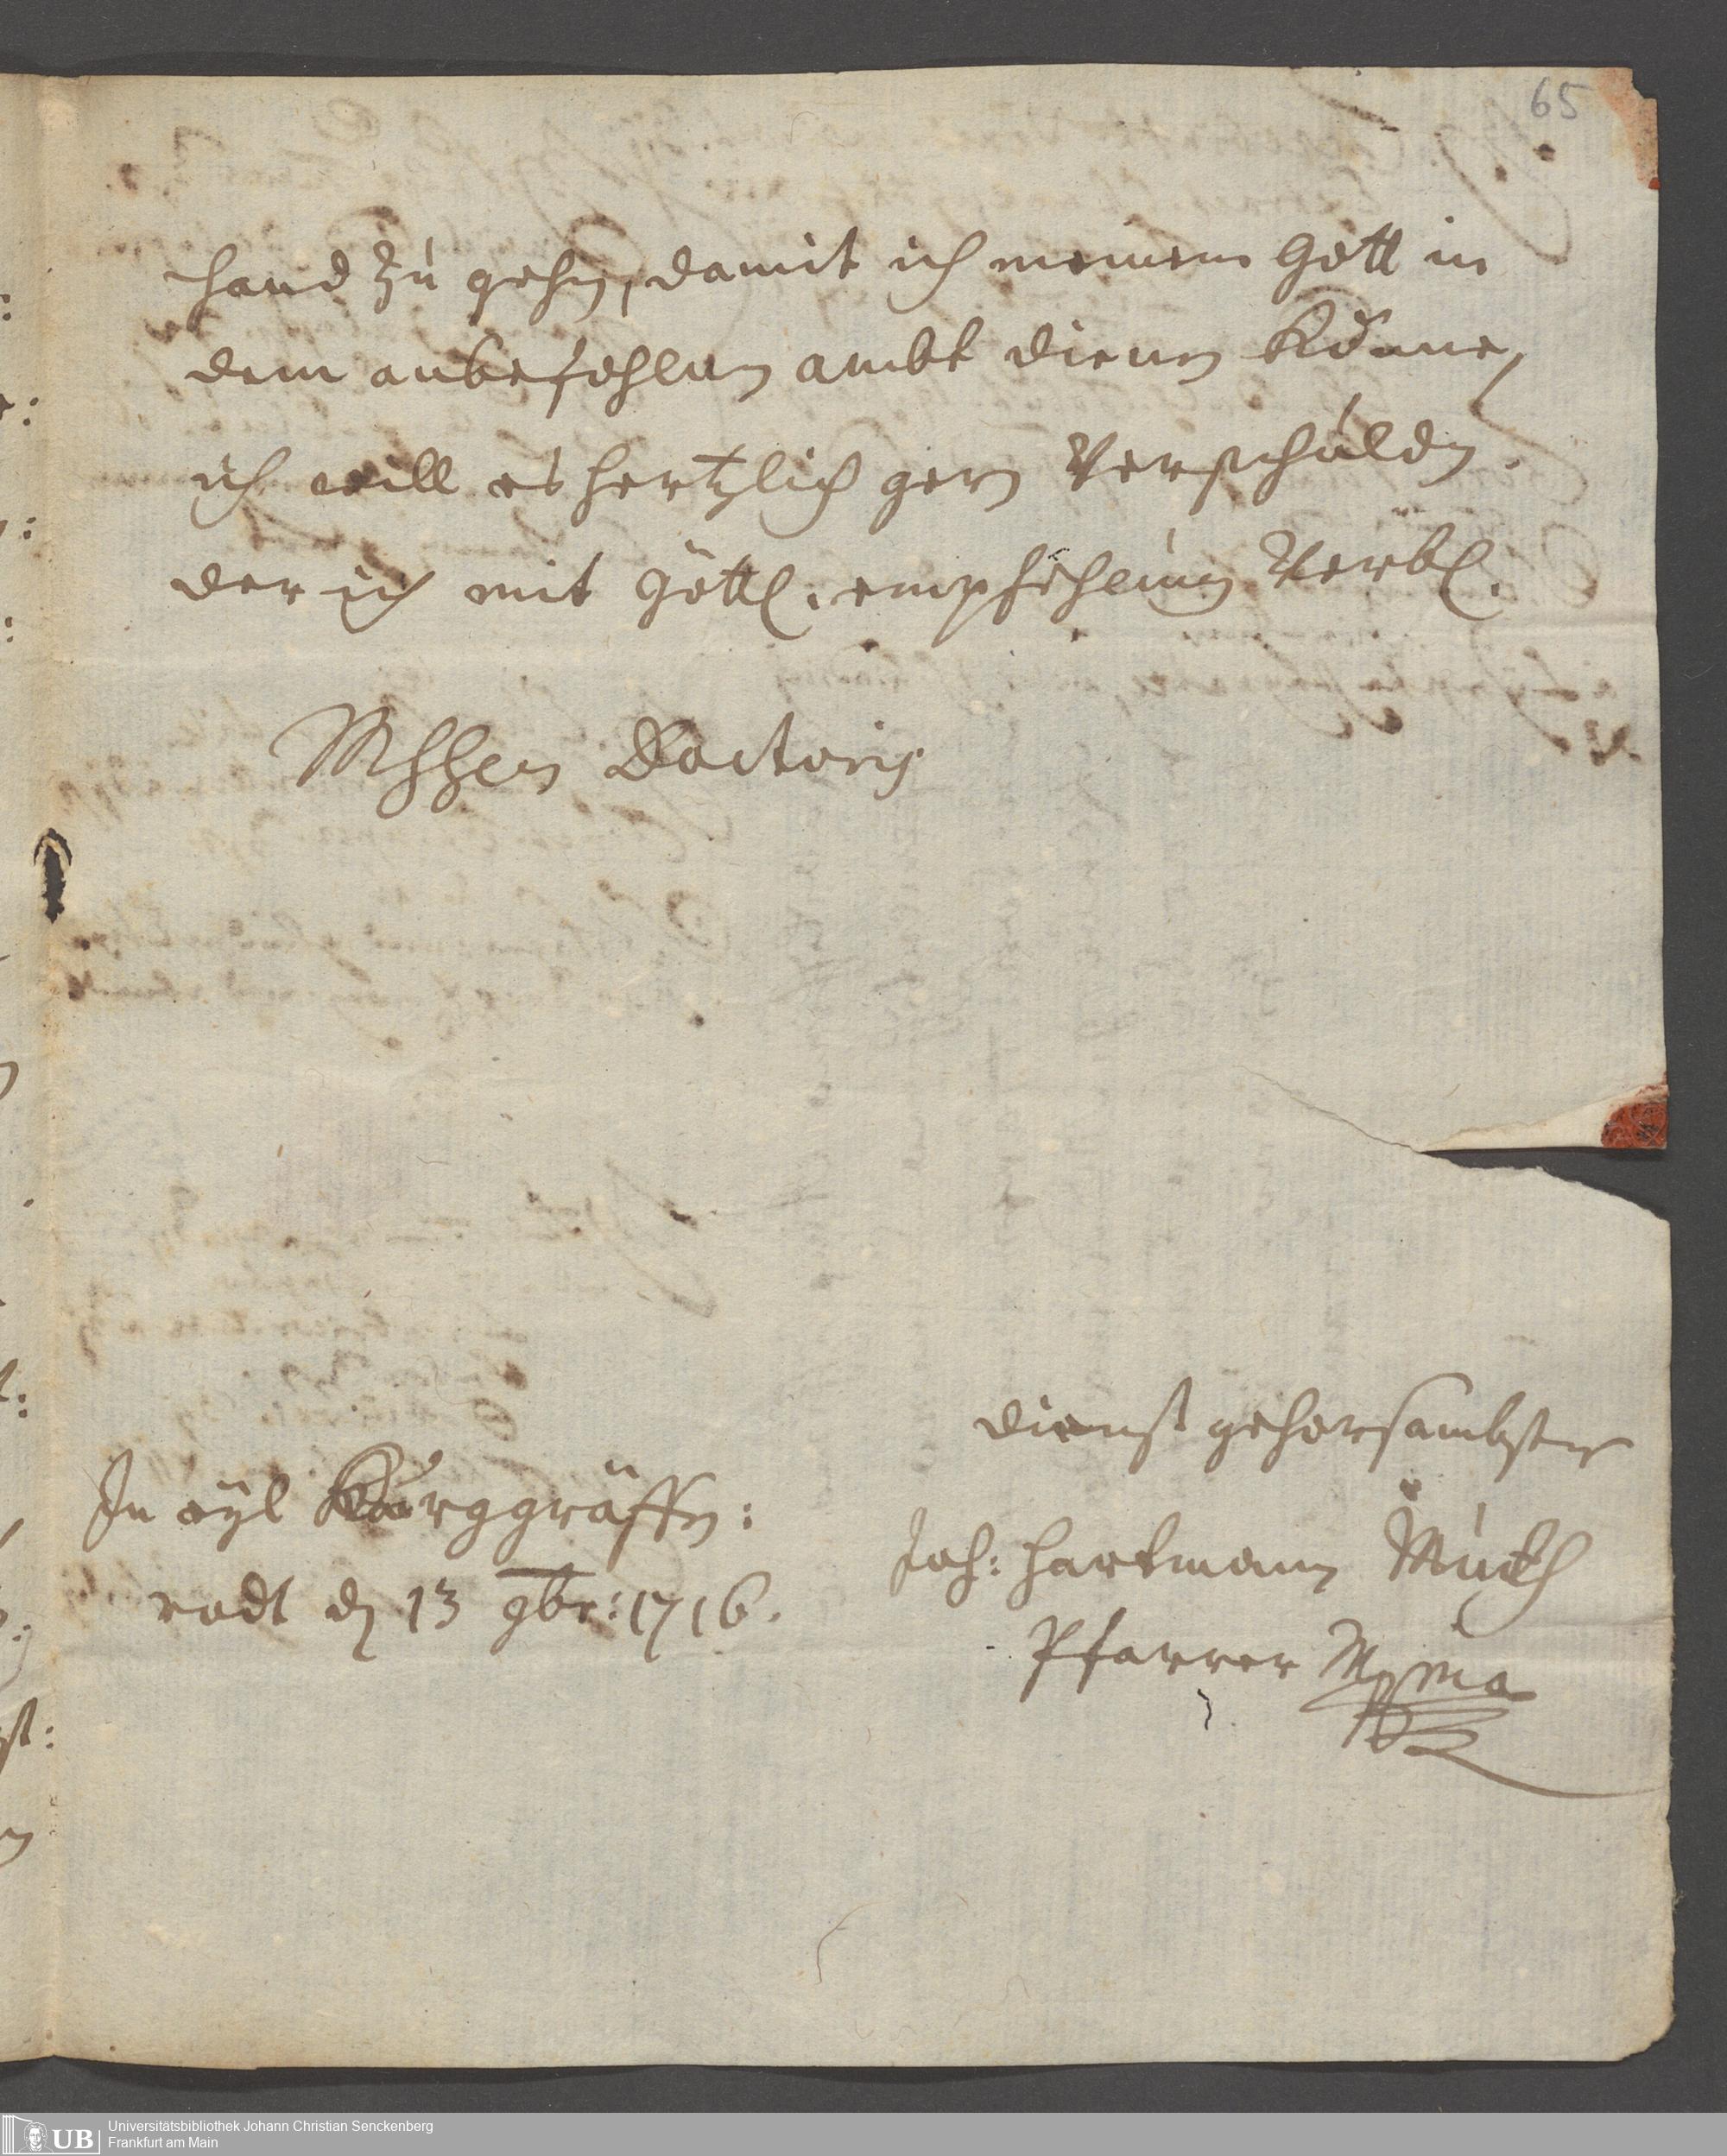 65
hand zu gehn, damit ich meinem Gott in
dem anbefohlenen ambt dienen könne,
ich will es hertzlich gern verschulden.
der ich mit Göttl. empfehlung verbl.
MhhEn Doctoris
dienst gehorsambster
In eyl Burggräffen:
rodt den 13 9br: 1716.
Joh: Hartmann Muth
Pfarrer Mppria
UB Universitätsbibliothek Johann Christian Senckenberg
Frankfurt am Main